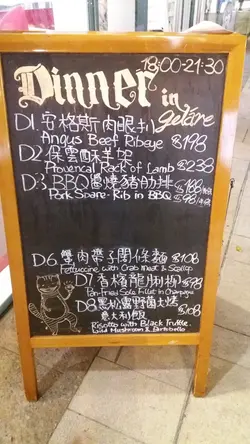 18:00-21:30
Dinner in
getare
D1. 安格斯肉眼扒
Angus Beef Ribeye $198
D2. 保雲酥羊架
Provencal Rack of Lamb $238
D3. BBQ醬燒豬肋排 $188
Pork Spare-Rib in BBQ $98
D6 蟹肉帶子闊條麵 $108
Fettuccine with Crab Meat & Scallop
D7 香檳龍脷柳 $98
Pan-fried Sole Fillet in Champagne
D8 黑松露野菌火烤 $108
意大利飯
Risotto with Black Truffle,
Wild Mushroom & Portobello